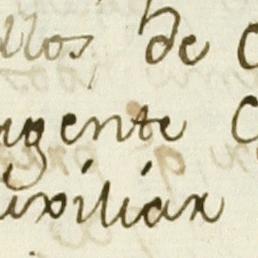 llos de
urgente
uxiliar